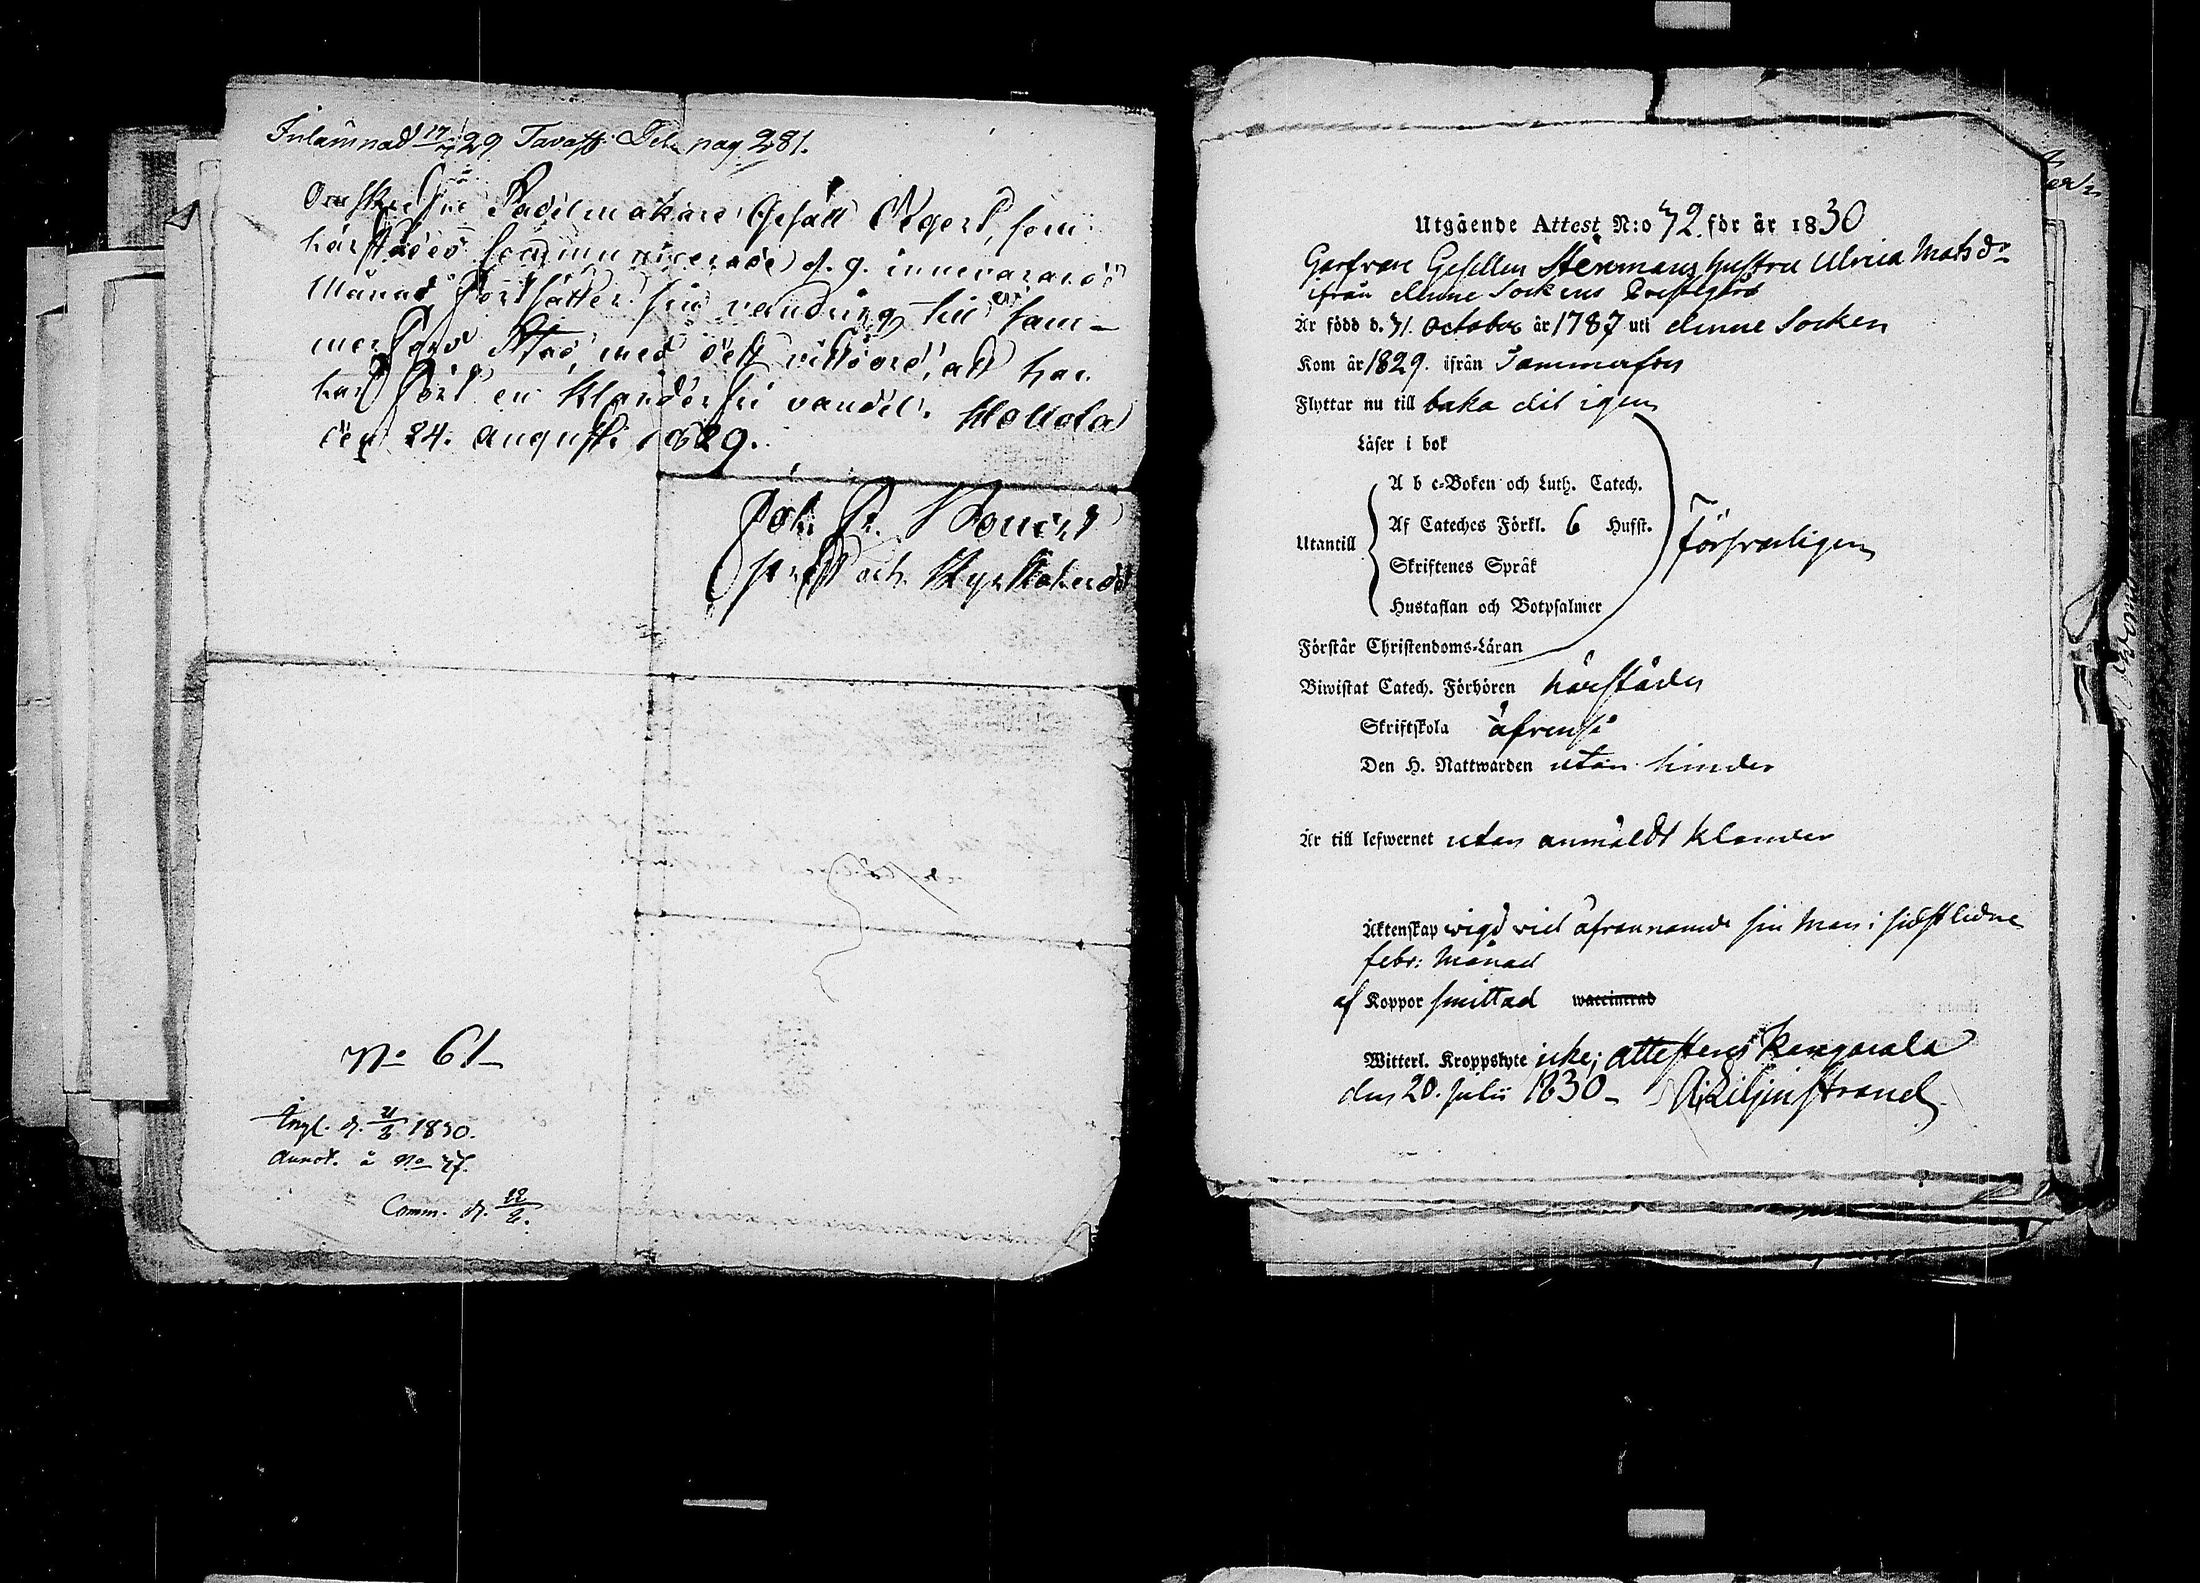 Inlämnad 17/9 29 Tavasth: Del. pag 281.
Omskrefne Sadelmakare Gesäll Ekgert, som
härstädes communicerade d. 9. innevarande
Månad fortsätter sin vandring till Tam-
merfors Stad, med det vittsord, att han
har fört en klanderfri vandel. Hollola
den 24. Augusti 1829.
Joh. Fr.
Pr: och Kyrkoherde
No 61
Ingl. d. 21/8 1830.
Annot. å No 77.
Comm. d. 22/8.
Utgående Attest N:o 72. för år 1830
Garfvare Gesellen Stenmans hustru Ulrica Matsdr
ifrån denne Sockens Prestgård
Är född d. 31. October år 1787 uti denne Socken
Kom år 1829. ifrån Tammerfors
Flyttar nu till baka dit igen
Läser i bok
A b c-Boken och Luth. Catech.
Af Cateches Förkl. 6 Hufst.
Utantill
Försvarligen
Skriftenes Språk
Hustaflan och Botpsalmer
Förstår Christendoms-Läran
Biwistat Catech. Förhören härstädes
Skriftskola äfvenså
Den H. Nattwarden utan hinder
Är till lefwernet utan anmäldt klander
Äktenskap wigd vid äfvannämnde sin Man i sidstledne
febr: Månad
af Koppor smittad waccinerad
Witterl. Kroppslyte icke; attesteras Kangasala
den 20. Julii 1830. A: Liljenstrand